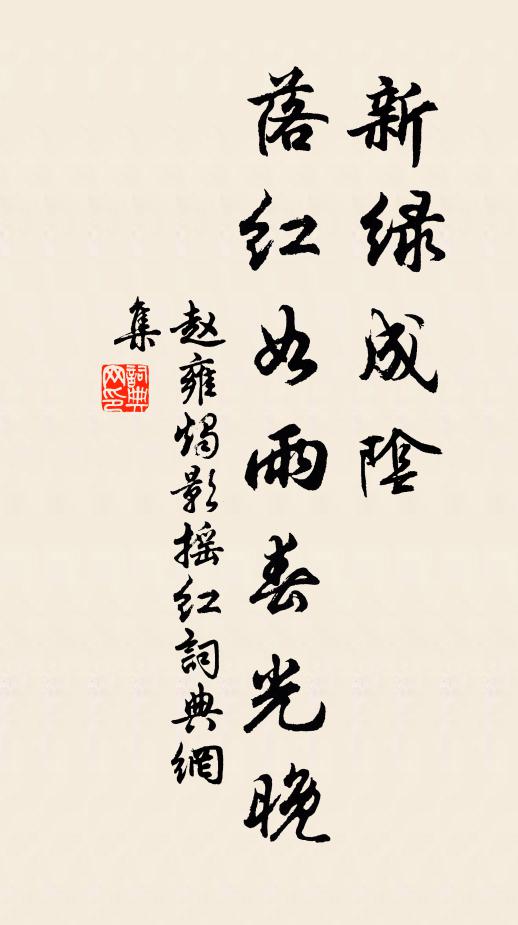 新緑成陰
落红如雨春光晚
赵雍烛影摇红詞典網
集
詞典
网印